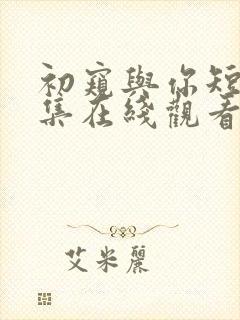 初窺與你短
集在綫觀看
艾米麗